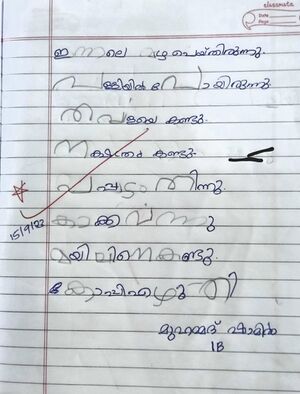 classmate
Date
Page
ഇന്നലെ മഴ പെയ്തിരുന്നു.
പള്ളിയിൽ പോയിരുന്നു.
കണ്ടു.
നക്ഷത്രം കണ്ടു.
പപ്പടം തിന്നു.
കാക്ക വന്നു
മയിലിനെ കണ്ടു.
കോപ്പി എഴുതി
15/9/22
മുഹമ്മദ് ഷാമിൽ
1B